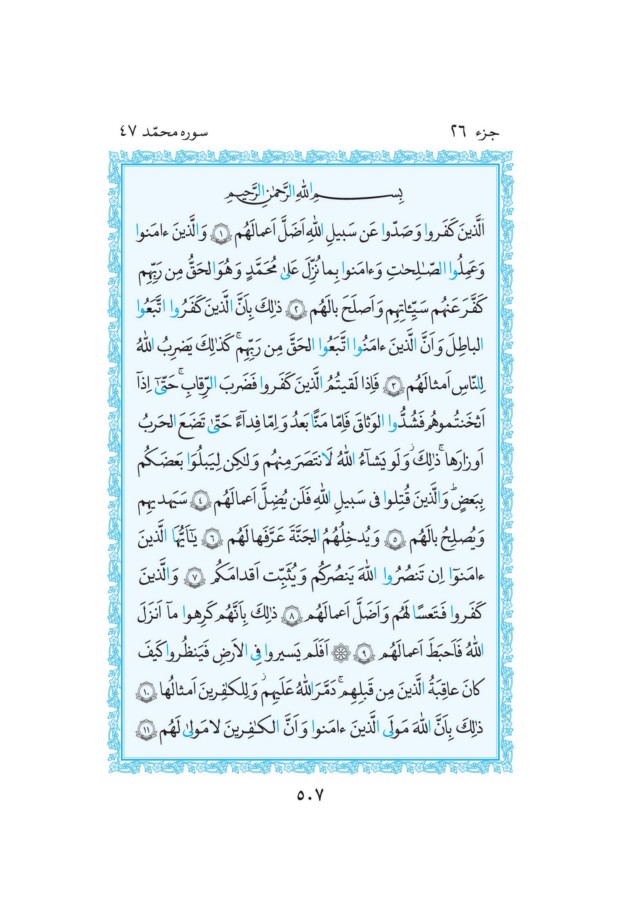 جزء ٢٦
سوره محمّد ٤٧
بِسْمِ اللهِ الرَّحمٰنِ الرَّحيمِ
اَلَّذينَ كَفَروا وَ صَدّوا عَن سَبيلِ اللهِ اَضَلَّ اَعمالَهُم ﴿١﴾ وَ الَّذينَ ءامَنوا
وَ عَمِلُوا الصّٰلِحٰتِ وَ ءامَنوا بِما نُزِّلَ عَلىٰ مُحَمَّدٍ وَ هُوَ الحَقُّ مِن رَبِّهِم
كَفَّرَ عَنهُم سَيِّئاتِهِم وَ اَصلَحَ بالَهُم ﴿٢﴾ ذٰلِكَ بِاَنَّ الَّذينَ كَفَرُوا اتَّبَعُوا
الباطِلَ وَ اَنَّ الَّذينَ ءامَنُوا اتَّبَعُوا الحَقَّ مِن رَبِّهِم ۚ كَذٰلِكَ يَضرِبُ اللهُ
لِلنّاسِ اَمثالَهُم ﴿٣﴾ فَاِذا لَقيتُمُ الَّذينَ كَفَروا فَضَربَ الرِّقابِ ۚ حَتّىٰٓ اِذآ
اَثخَنتُموهُم فَشُدُّوا الوَثاقَ فَاِمّا مَنًّا بَعدُ وَ اِمّا فِدآءً حَتّىٰ تَضَعَ الحَربُ
اَوزارَها ۚ ذٰلِكَ ۛ وَ لَو يَشآءُ اللهُ لَانتَصَرَ مِنهُم وَ لٰكِن لِيَبلُوَا بَعضَكُم
بِبَعضٍ ۗ وَ الَّذينَ قُتِلوا فى سَبيلِ اللهِ فَلَن يُضِلَّ اَعمالَهُم ﴿٤﴾ سَيَهديهِم
وَ يُصلِحُ بالَهُم ﴿٥﴾ وَ يُدخِلُهُمُ الجَنَّةَ عَرَّفَها لَهُم ﴿٦﴾ يٰٓاَيُّهَا الَّذينَ
ءامَنوٓا اِن تَنصُرُوا اللهَ يَنصُركُم وَ يُثَبِّت اَقدامَكُم ﴿٧﴾ وَ الَّذينَ
كَفَروا فَتَعسًا لَهُم وَ اَضَلَّ اَعمالَهُم ﴿٨﴾ ذٰلِكَ بِاَنَّهُم كَرِهوا مآ اَنزَلَ
اللهُ فَاَحبَطَ اَعمالَهُم ﴿٩﴾ ۞ اَفَلَم يَسيروا فِى الاَرضِ فَيَنظُروا كَيفَ
كانَ عاقِبَةُ الَّذينَ مِن قَبلِهِم ۚ دَمَّرَ اللهُ عَلَيهِم ۖ وَ لِلكٰفِرينَ اَمثالُها ﴿١٠﴾
ذٰلِكَ بِاَنَّ اللهَ مَولَى الَّذينَ ءامَنوا وَ اَنَّ الكٰفِرينَ لا مَولىٰ لَهُم ﴿١١﴾
٥٠٧